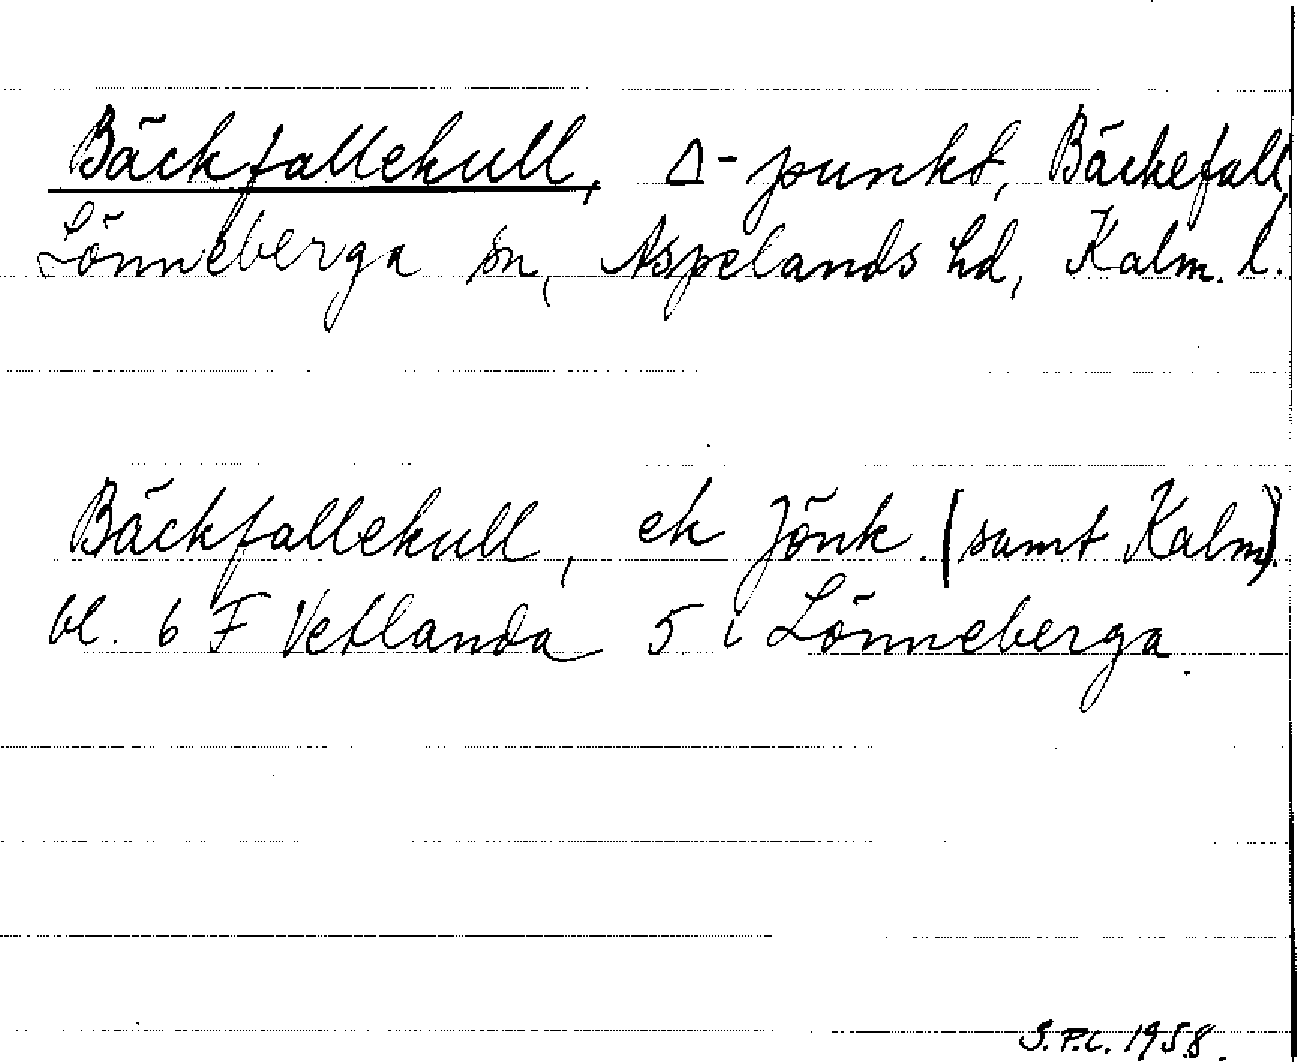 Bäckfallekull, Δ-punkt, Bäckefall,
Lönneberga sn, Aspelands hd, Kalm. l.
Bäckfallekull, ek Jönk. (samt Kalm).
bl. 6 F Vetlanda 5 i Lönneberga.
S.P.L. 1958.